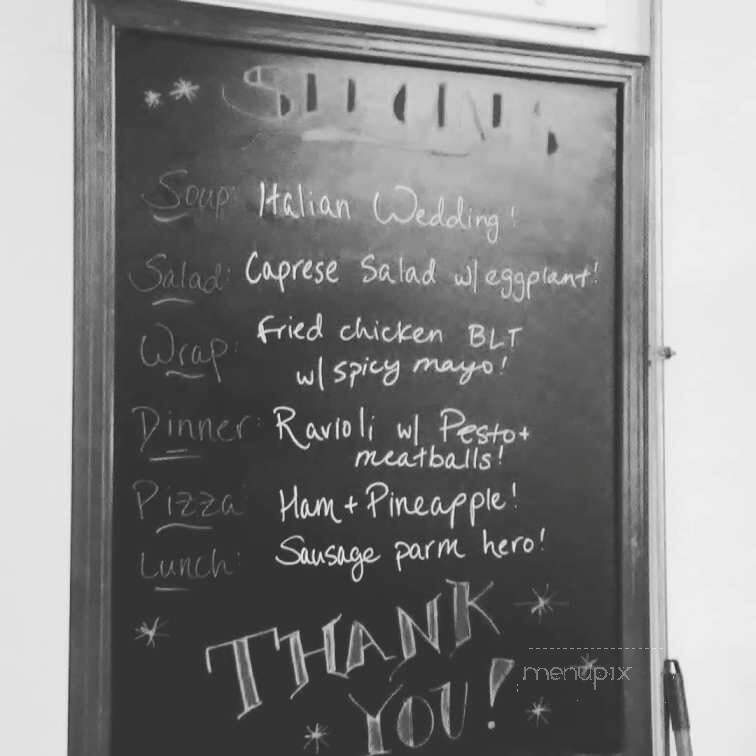 SPECIALS
Soup: Italian Wedding!
Salad: Caprese Salad w/eggplant!
Wrap: Fried chicken BLT
w/ spicy mayo!
Dinner: Ravioli w/ Pesto+
meatballs!
Pizza: Ham + Pineapple!
Lunch: Sausage parm hero!
THANK
YOU!
menupix